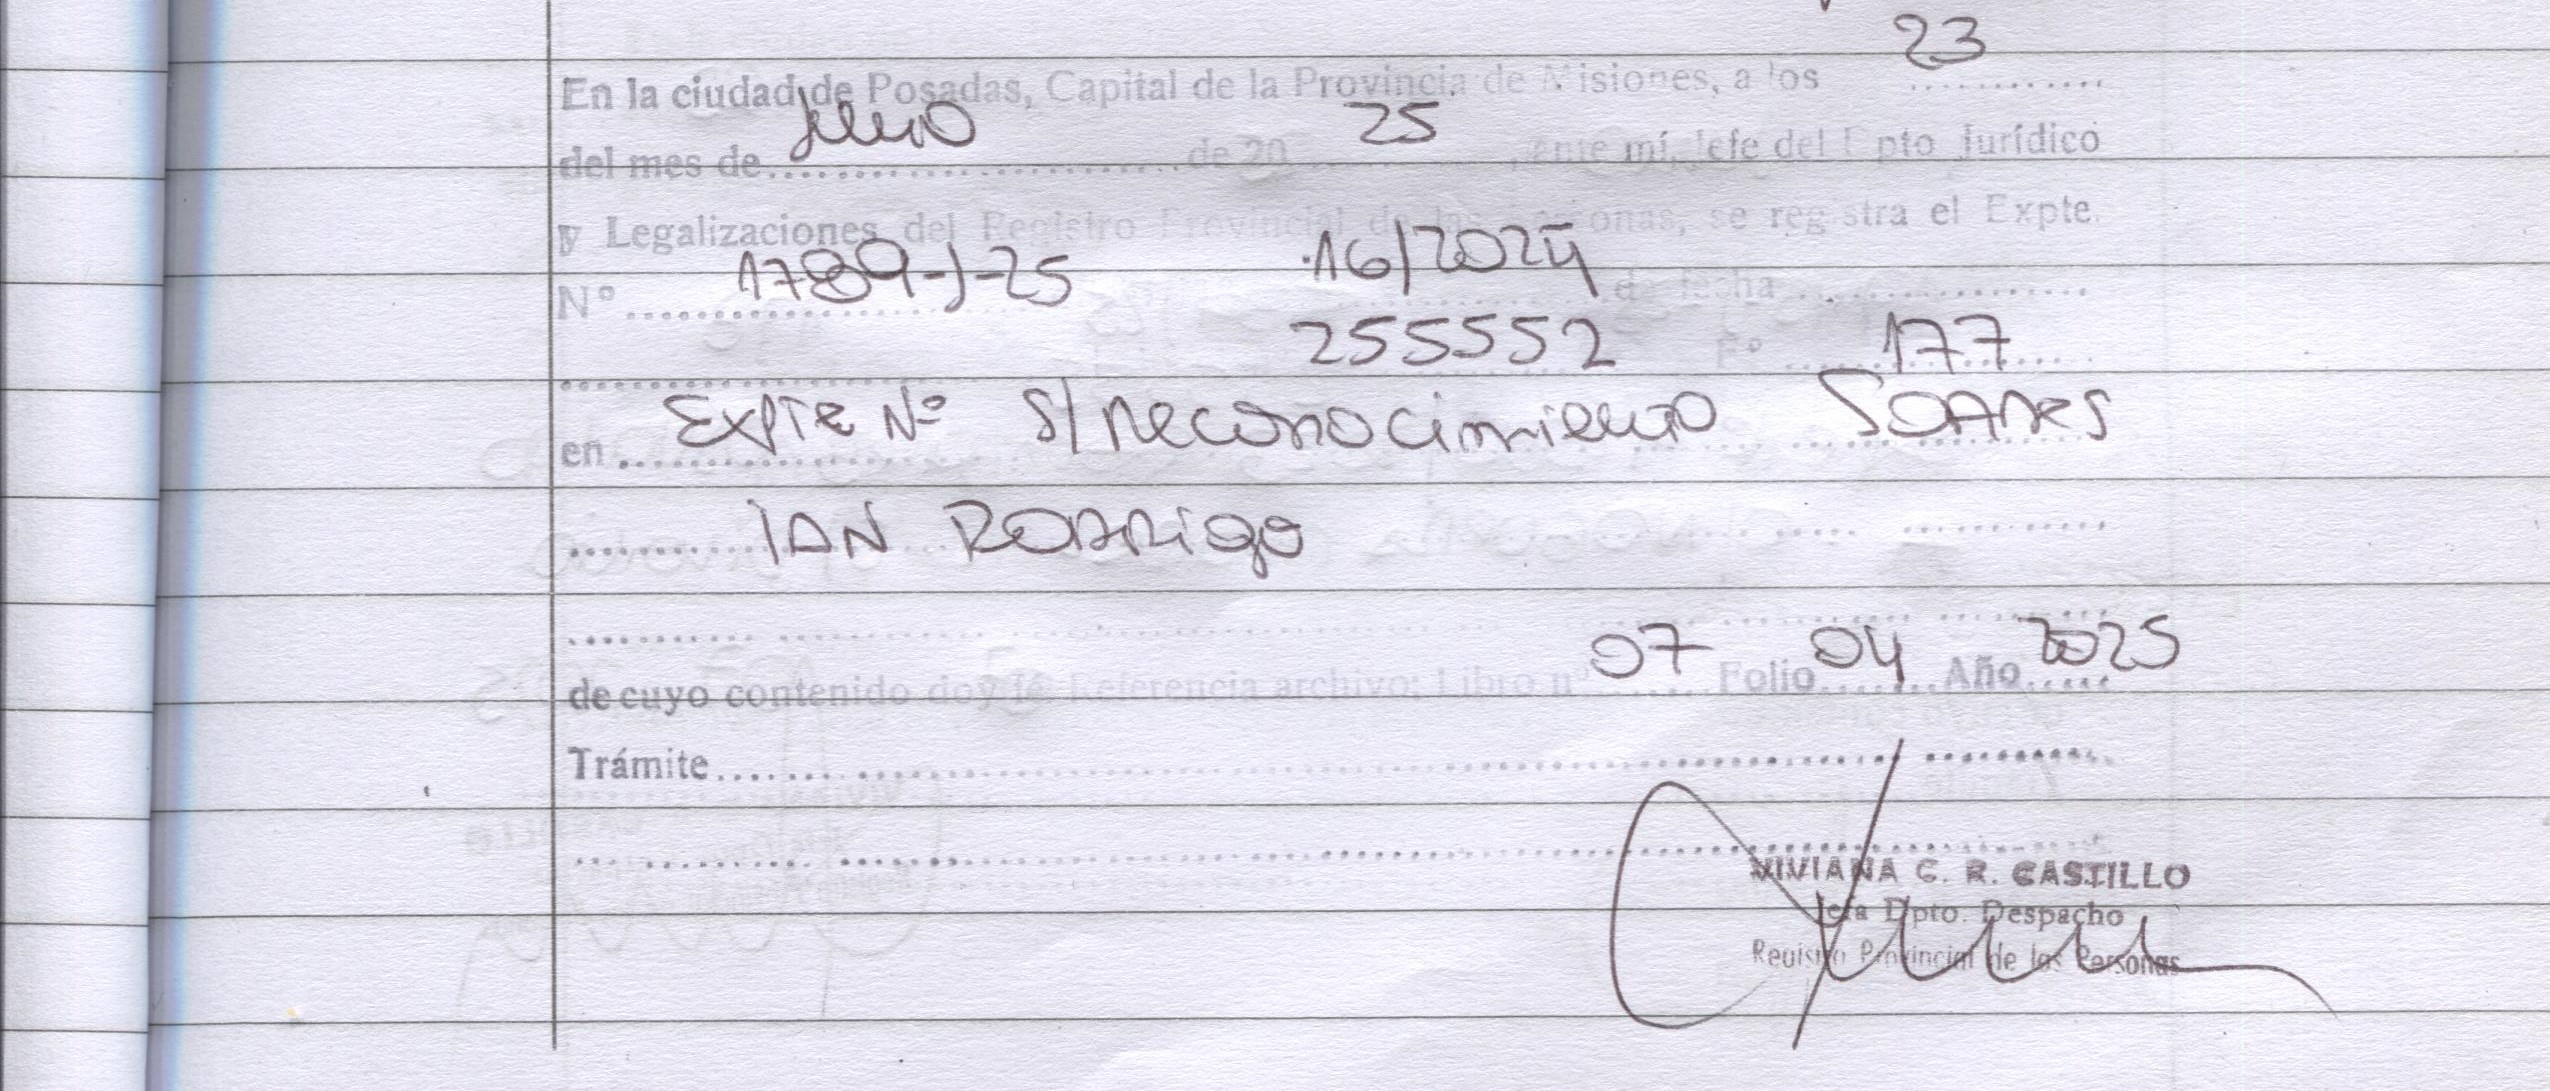 23
En la ciudad de Posadas, Capital de la Provincia de Misiones, a los ............
Julio 25
del mes de........................de 20 ............, ante mí, Jefe del Dpto Jurídico
y Legalizaciones del Registro Provincial de las Personas, se registra el Expte.
1789-J-25 16/2024
Nº .................... de fecha ..................
255552 Fº 177
en Expte Nº S/Reconocimiento Soares
Ian Rodrigo
07 04 2025
de cuyo contenido doy fé Referencia archivo: Libro nº....... Folio....... Año.....
Trámite..............................
VIVIANA G. R. CASTILLO
Jefa Dpto. Despacho
Registro Provincial de las Personas